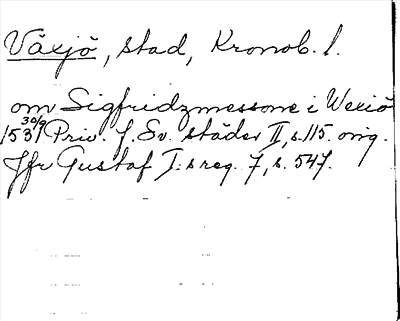 Växjö, stad, Kronob. l.
om Sigfridzmessone i Wexiö
1531 30/9 Priv. f. Sv. städer II, s. 115. orig.
Jfr Gustaf I:s reg. 7, s. 547.